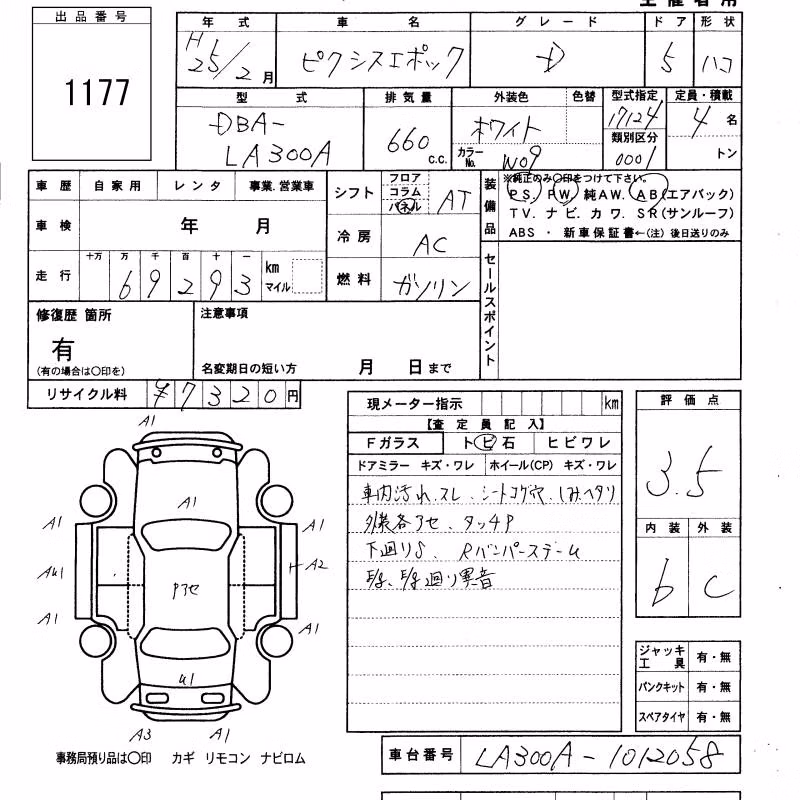 出品番号
1177
年式 車名 グレード ドア 形状
H25/2月 ピクシスエポック D 5 ハコ
型式 排気量 外装色 色替 型式指定 定員・積載
DBA-LA300A 660 c.c. ホワイト カラーNo. W09 17124 類別区分 0001 4名 トン
車歴 自家用 レンタ 事業.営業車
シフト フロア コラム パネル AT
装備品 ※純正のみ〇印をつけて下さい。
PS. PW. 純AW. AB(エアバック)
TV. ナビ. カワ. SR(サンルーフ)
ABS ・ 新車保証書←(注) 後日送りのみ
車検 年 月
冷房 AC
走行 十万 万 千 百 十 一 km マイル
69293
燃料 ガソリン
セールスポイント
修復歴 箇所
有
(有の場合は〇印を)
注意事項
名変期日の短い方 月 日まで
リサイクル料 ¥7320円
現メーター指示 km
【査定員記入】
Fガラス トビ石 ヒビワレ
ドアミラー キズ・ワレ ホイール(CP) キズ・ワレ
車内汚れ.スレ、シートコゲ穴、しみヘタリ
外装各アセ、タッチP
下廻りS、Rバンパーステーム
廻り異音
評価点
3.5
内装 外装
b C
A1
A1
A1 A1
AU1 Pアセ A2
A1 A1
U1
A3 A1
事務局預り品は〇印 カギ リモコン ナビロム
ジャッキ工具 有・無
パンクキット 有・無
スペアタイヤ 有・無
車台番号 LA300A-1012058